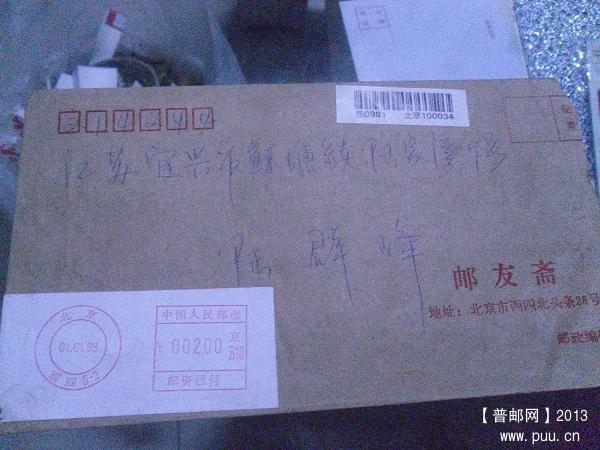 214244
挂0981 北京100034
江苏宜兴市鲸塘镇陆家濠9号
陆群峰
邮友斋
地址：北京市西四北头条28号
邮政编
北京
04.01.93
中国人民邮政
002.00
京
邮资已付
【普邮网】2013
www.puu.cn